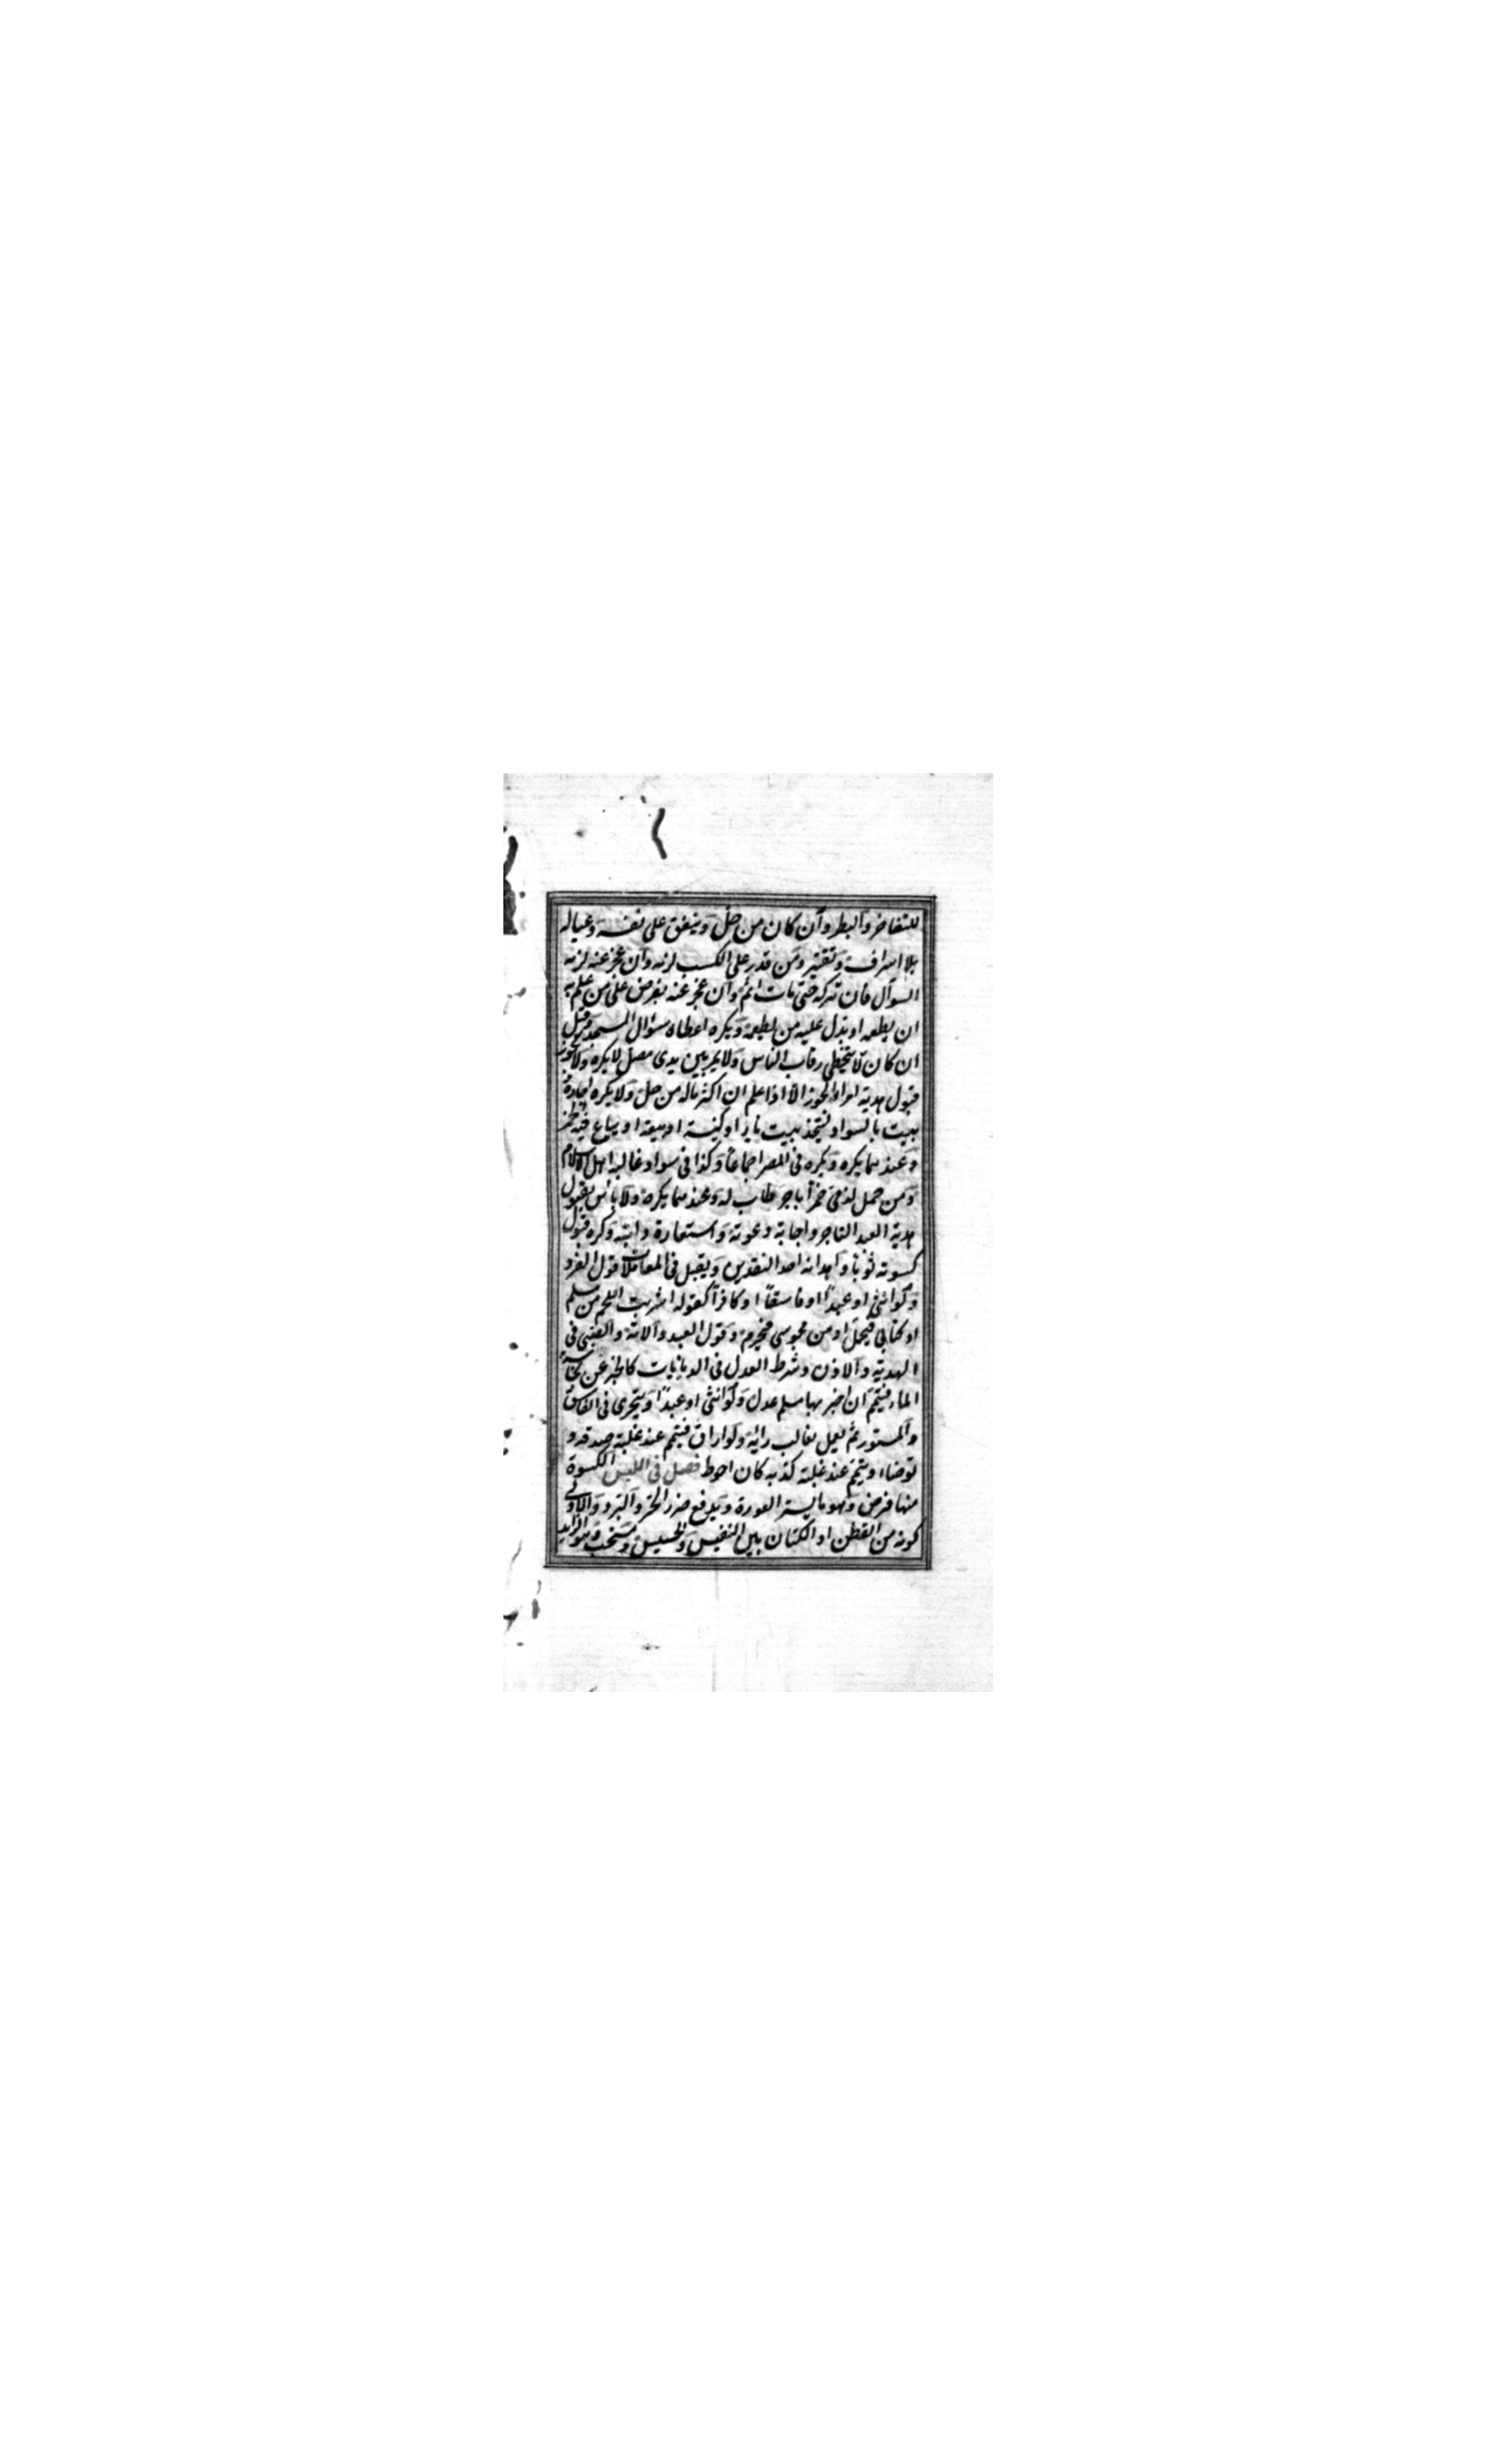 للتفاخر والبطر وان كان من حل وينفق على نفسه وعياله
بلا اسراف وتقتير ومن قدر على الكسب لزمه وان عجز عنه لزمه
السوآل فان تركه حتى مات اثم وان عجز عنه يفرض على من علم به
ان يطعمه او يدل عليه من يطعمه ويكره اعطاء سؤال المسجد وقيل
ان كان لا يتخطى رقاب الناس ولا يمر بين يدى مصل لا يكره ولا يجوز
قبول هدية امراء الجور الا اذا علم ان اكثر ماله من حل ولا يكره اجارة
بيت بالسواد ليتخذ بيت نار او كنيسة او بيعة او يباع فيه الخمر
وعندهما يكره ويكره فى المصر اجماعا وكذا فى سواد غالبه اهل الاسلام
ومن حمل لذمى خمرا باجر طاب له وعندهما يكره ولا بأس بقبول
هدية العبد التاجر واجابة دعوته واستعارة دابته وكره قبول
كسوته ثوبا واهدائه احد النقدين ويقبل فى المعاملات قول الفرد
ولو انثى او عبدا او فاسقا او كافرا كقوله اشريت اللحم من مسلم
او كتابى فيحل او من مجوسى فيحرم وقول العبد والامة والصبى فى
الهدية والاذن وشرط العدل فى الديانات كالخبر عن نجاسة
الماء فيتيمم ان اخبر بها مسلم عدل ولو انثى او عبدا ويتحرى فى الفاسق
والمستور ثم يعمل بغالب رأيه ولو اراق فتيمم عند غلبة صدقه و
توضاء وتيمم عند غلبة كذبه كان احوط فصل فى اللبس الكسوة
منها فرض وهو ما يستر العورة ويدفع ضرر الحر والبرد والاولى
كونه من القطن او الكتان بين النفيس والخسيس ومستحب وهو الزايد